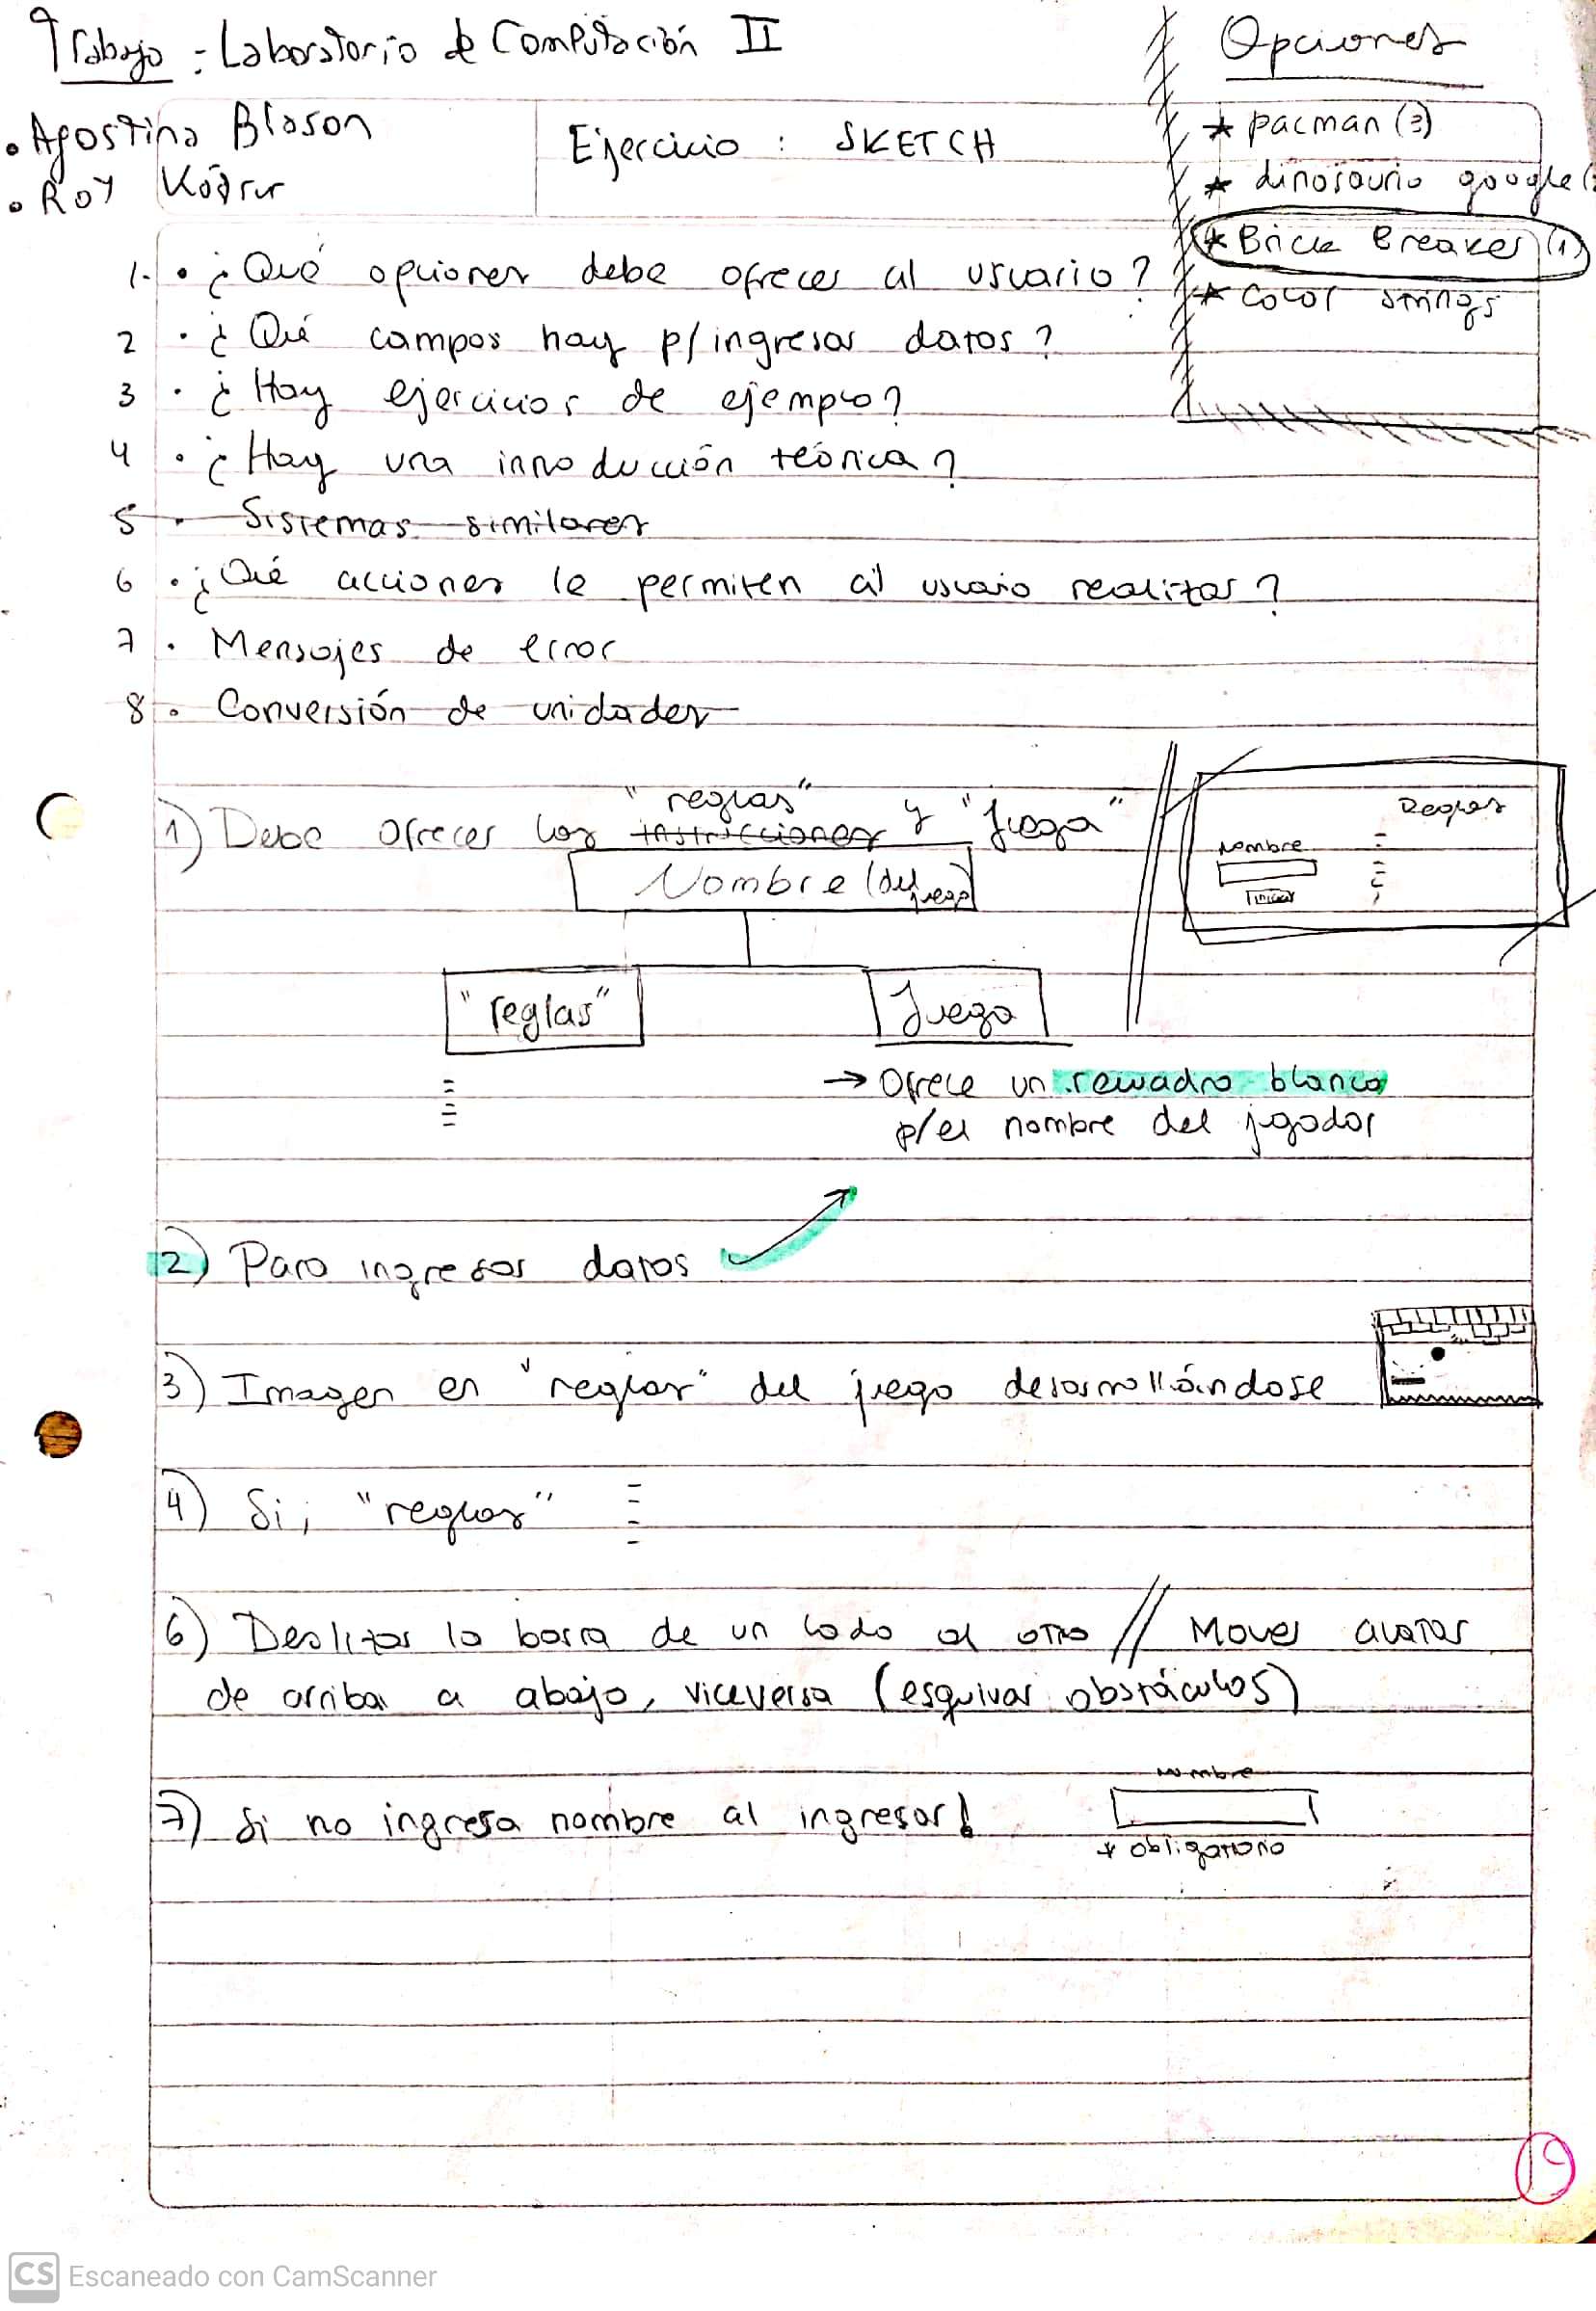 Trabajo : Laboratorio de Computación II
• Agostina Blason
• Roy
Ejercicio : SKETCH
Opciones
* pacman (3)
* dinosaurio google
* Brick Breaker (1)
* Color strings
1. • ¿Qué opciones debe ofrecer al usuario?
2 • ¿Qué campos hay p/ ingresar datos?
3 • ¿Hay ejercicios de ejemplo?
4 • ¿Hay una introducción teórica?
5 • Sistemas similares
6 • ¿Qué acciones le permiten al usuario realizar?
7 • Mensajes de error
8 • Conversión de unidades
"reglas"
1) Debe ofrecer las instrucciones y "juego"
Nombre (del juego)
"reglas"
Juego
→ Ofrece un recuadro blanco
p/el nombre del jugador
Reglas
Nombre
Iniciar
2) Para ingresar datos
3) Imagen en "reglas" del juego desarrollándose
4) Si, "reglas"
6) Deslizar la barra de un lado al otro // Mover avatar
de arriba a abajo, viceversa (esquivar obstáculos)
7) Si no ingresa nombre al ingresar!
Nombre
* obligatorio
19
CS Escaneado con CamScanner